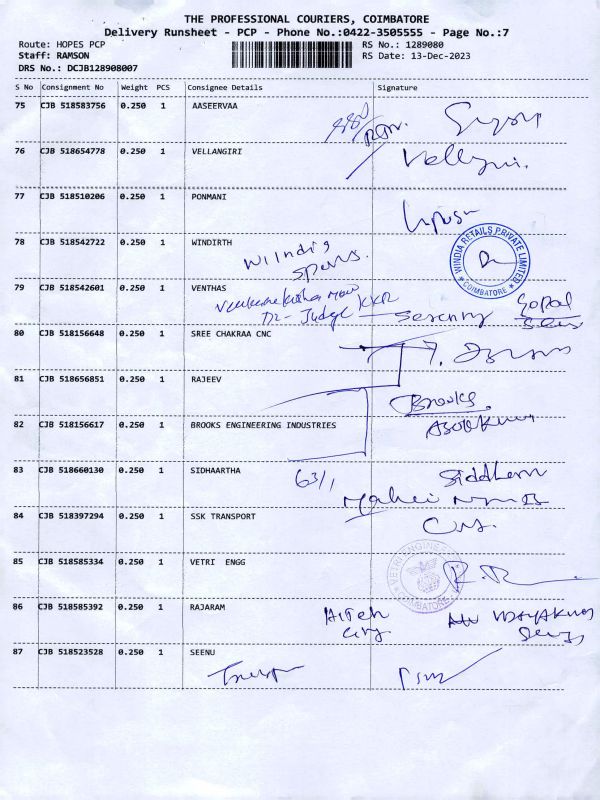 THE PROFESSIONAL COURIERS, COIMBATORE
Delivery Runsheet - PCP - Phone No.:0422-3505555 - Page No.:7
Route: HOPES PCP
Staff: RAMSON
DRS No.: DCJB128908007
RS No.: 1289080
RS Date: 13-Dec-2023
S No Consignment No Weight PCS Consignee Details Signature
75 CJB 518583756 0.250 1 AASEERVAA
76 CJB 518654778 0.250 1 VELLANGIRI
77 CJB 518510206 0.250 1 PONMANI
78 CJB 518542722 0.250 1 WINDIRTH
WINDIA RETAILS PRIVATE LIMITED
COIMBATORE
79 CJB 518542601 0.250 1 VENTHAS
Judge KKR
Serenity
Gopal
80 CJB 518156648 0.250 1 SREE CHAKRAA CNC
81 CJB 518656851 0.250 1 RAJEEV
Brooks
82 CJB 518156617 0.250 1 BROOKS ENGINEERING INDUSTRIES
83 CJB 518660130 0.250 1 SIDHAARTHA
63/1
84 CJB 518397294 0.250 1 SSK TRANSPORT
85 CJB 518585334 0.250 1 VETRI ENGG
COIMBATORE
86 CJB 518585392 0.250 1 RAJARAM
City
87 CJB 518523528 0.250 1 SEENU